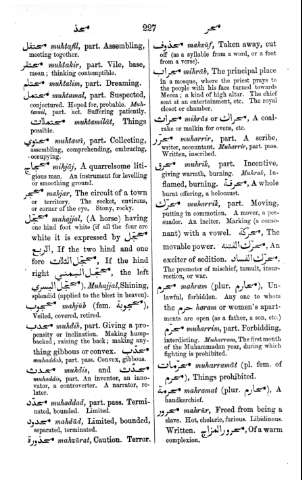 محذ
227
محر
محتفل muhtafil, part. Assembling,
meeting together.
محتقر muhtakir, part. Vile, base,
mean; thinking contemptible.
محتلم muhtalim, part. Dreaming.
محتمل muhtamal, part. Suspected,
conjectured. Hoped for, probable. Muh-
tamil, part. act. Suffering patiently.
محتملات muhtamilāt, Things
possible.
محتوي muhtawī, part. Collecting,
assembling, comprehending, embracing,
occupying.
A quarrelsome liti-
gious man. An instrument for levelling
or smoothing ground.
محجر mahjar, The circuit of a town
or territory. The socket, environs,
or corner of the eye. Stony, rocky.
محجل muhajjal, (A horse) having
one hind foot white (if all the four are
white it is expressed by محجل
If the two hind and one
fore محجل الثالث, If the hind
right محجل اليمني, the left
Muhajjal, Shining,
splendid (applied to the blest in heaven).
Veiled, covered, retired.
محدب muhdib, part. Giving a pro-
pensity or inclination. Making hump-
backed, raising the back; making any-
thing gibbous or convex. محدب
muhaddab, part. pass. Convex, gibbous.
محدث muhdis, and محدث
muhaddis, part. An inventor, an inno-
vator, a controverter. A narrator, re-
later.
محدد muhaddad, part. pass. Termi-
nated, bounded. Limited.
محدود mahdūd, Limited, bounded,
separated, terminated.
محذورة mahzūrat, Caution. Terror.
محذوف mahzūf, Taken away, cut
off (as a syllable from a word, or a foot
from a verse).
محراب mihrāb, The principal place
in a mosque, where the priest prays to
the people with his face turned towards
Mecca; a kind of high altar. The chief
seat at an entertainment, etc. The royal
closet or chamber.
محراث mihrās or محراث, A coal-
rake or malkin for ovens, etc.
محرر muharrir, part. A scribe,
writer, accountant. Muharrar, part. pass.
Written, inscribed.
محرق muhriḳ, part. Incentive,
giving warmth, burning. Muhraḳ, In-
flamed, burning. محرقة, A whole
burnt offering, a holocaust.
محرك muharrik, part. Moving,
putting in commotion. A mover, a pro-
pounder. An inciter. Marking (a conso-
nant) with a vowel. محركة, The
movable power. محرك الفتنة, An
exciter of sedition. محرك الفساد,
The promoter of mischief, tumult, insur-
rection, or war.
محرم mahram (plur. محارم), Un-
lawful, forbidden. Any one to whom
the حرم haram or women's apart-
ments are open (as a father, a son, etc.)
محرم muharrim, part. Forbidding,
interdicting. Muharram, The first month
of the Muhammadan year, during which
fighting is prohibited.
محرمات muharramāt (pl. fem. of
محرم), Things prohibited.
محرمة mahramat (plur. محارم), A
handkerchief.
محرور mahrūr, Freed from being a
slave. Hot, choleric, furious. Libidinous.
Written. محرور المزاج, Of a warm
complexion.